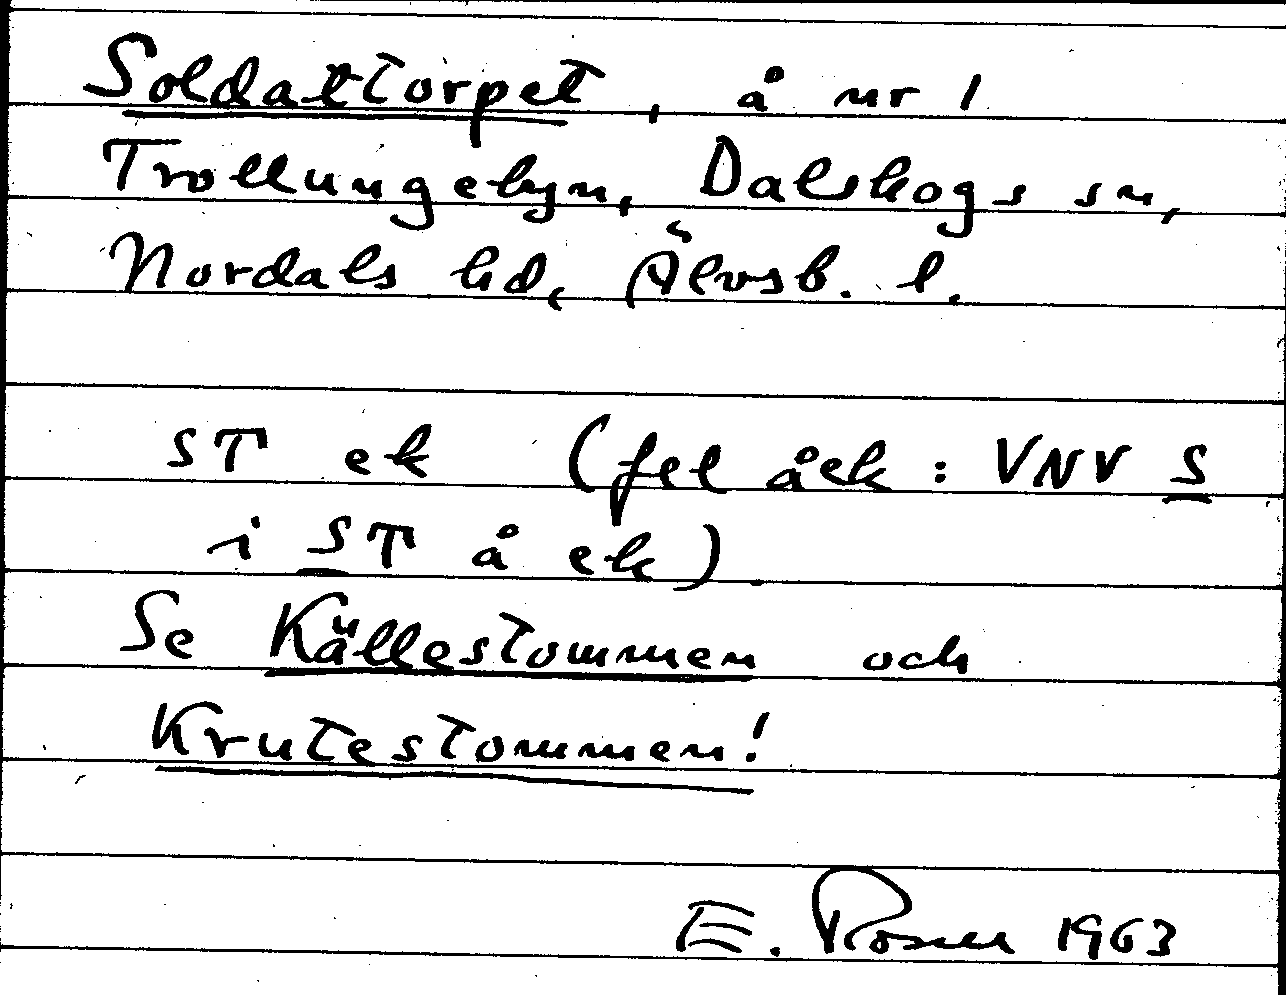 Soldattorpet, å nr 1
Trollungebyn, Dalskogs sn,
Nordals hd, Älvsb. l.
ST ek (fel åek: VNV S
i ST å ek).
Se Källestommen och
Krutestommen!
E. Rosner 1963